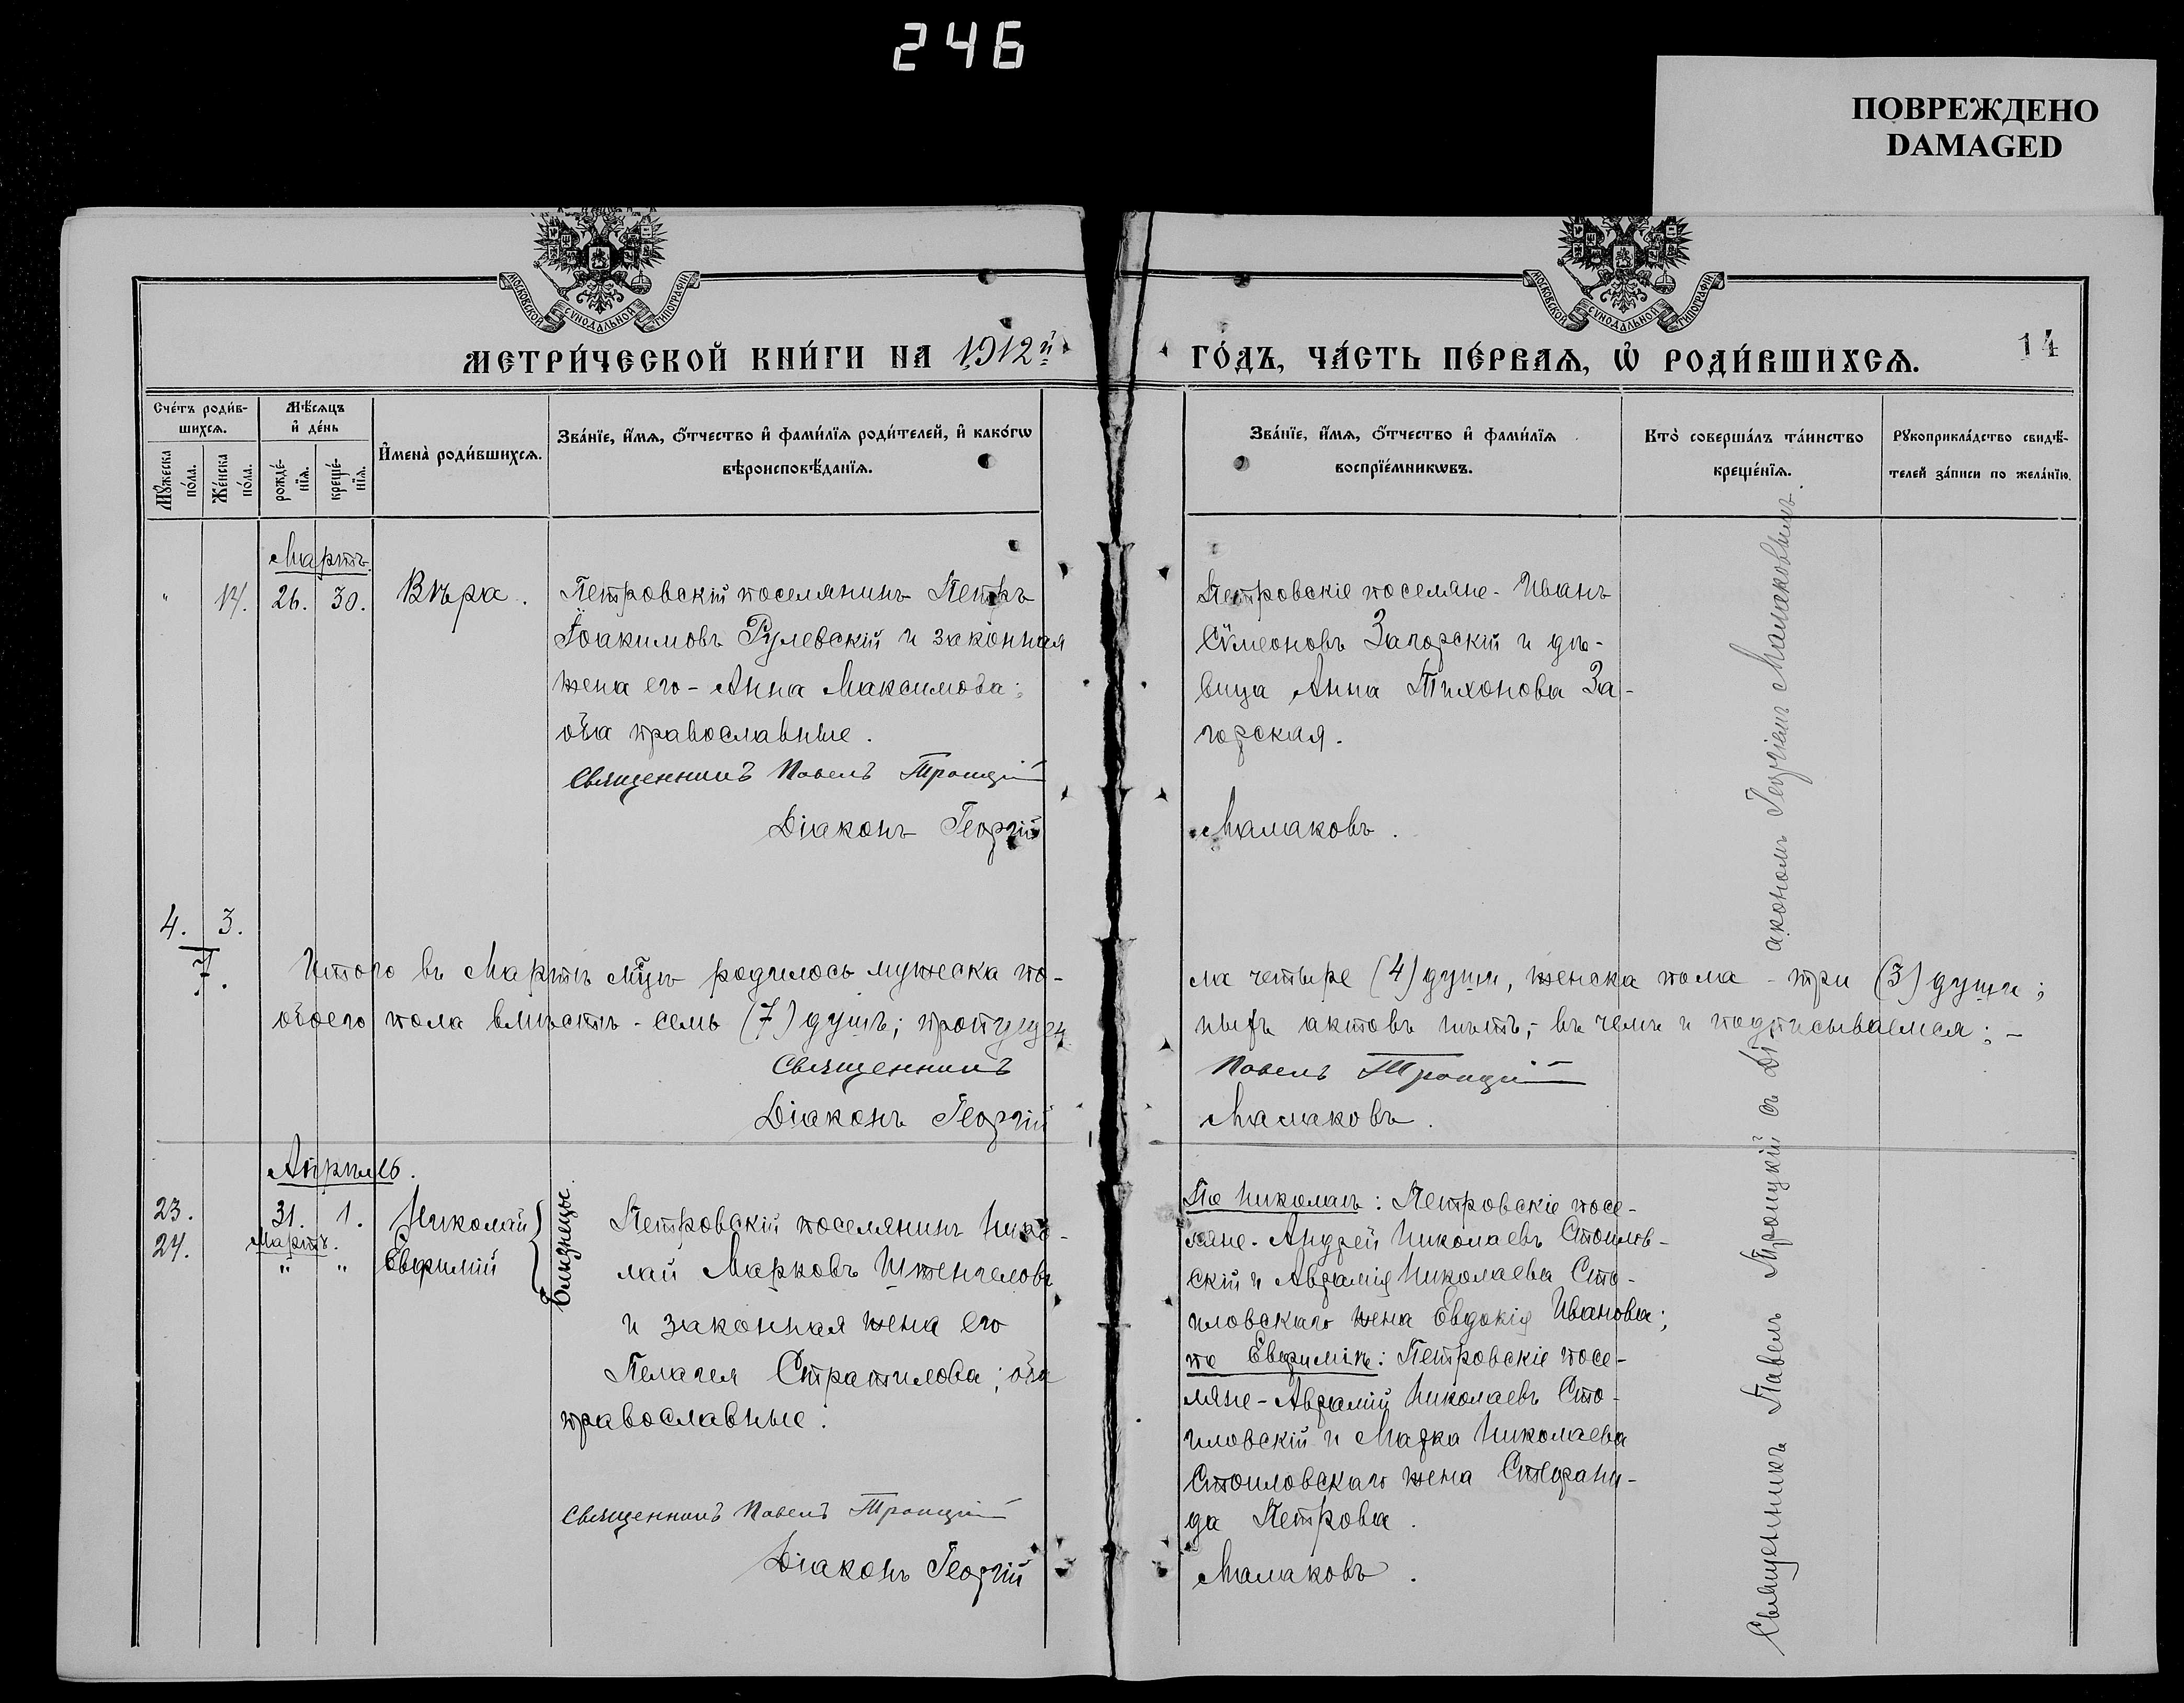 246
ПОВРЕЖДЕНО
DAMAGED
МОСКОВСКОЙ СѴНОДАЛЬНОЙ ТИПОГРАФІИ
МОСКОВСКОЙ СѴНОДАЛЬНОЙ ТИПОГРАФІИ
МЕТРИ́ЧЕСКОЙ КНИ́ГИ НА 1912й
ГО́ДЪ, ЧА́СТЬ ПЕ́РВАѦ, Ѡ҆ РОДИ́ВШИХСѦ.
14
Сче́тъ роди́в-
шихсѧ.
Мꙋ́жеска
по́ла.
Же́нска
по́ла.
Мѣ́сѧцъ
и҆ де́нь
рожде́-
нїѧ.
креще́-
нїѧ.
И҆мена̀ роди́вшихсѧ.
Зва́нїе, и҆́мѧ, ѻ҆́тчество и҆ фами́лїѧ роди́телей, и҆ како́гѡ
вѣроисповѣ́данїѧ.
Зва́нїе, и҆́мѧ, ѻ҆́тчество и҆ фами́лїѧ
воспрїе́мникѡвъ.
Кто̀ соверша́лъ та́инство
креще́нїѧ.
Рꙋкоприкла́дство свидѣ́-
телей за́писи по жела́нїю.
Мартъ.
" 14. 26. 30. Вѣра.
Петровскій поселянинъ Петръ
Іоакимовъ Рулевскій и законная
жена его - Анна Максимова;
оба православные.
Священникъ Павелъ Троицкій
Діаконъ Георгій
Петровскіе поселяне - Иванъ
Сѵмеоновъ Загорскій и дѣ-
вица Анна Тихонова За-
горская.
Мамаковъ.
4. 3.
7.
Итого въ Мартѣ м-цѣ родилось мужеска по-
ла четыре (4) души, женска пола - три (3) души;
обоего пола вмѣстѣ - семь (7) душъ; пропущен
ныхъ актовъ нѣтъ, - въ чемъ и подписываемся: -
Священникъ
Павелъ Троицкій
Діаконъ Георгій
Мамаковъ.
Апрѣль.
23. 31. 1. Николай
24. Мартъ.
" " Евфимій
близнецы.
Петровскій поселянинъ Нико-
лай Марковъ Штенгеловъ
и законная жена его
Пелагея Стратилова; оба
православные.
Священникъ Павелъ Троицкій
Діаконъ Георгій
По Николаѣ: Петровскіе посе-
ляне - Андрей Николаевъ Стоилов-
скій и Авраамія Николаева Сто-
иловскаго жена Евдокія Иванова;
по Евфиміѣ: Петровскіе посе-
ляне - Авраамій Николаевъ Сто-
иловскій и Марка Николаева
Стоиловскаго жена Стефани-
да Петрова.
Мамаковъ.
Священникъ Павелъ Троицкій съ Ді
акономъ Георгіемъ Мамаковымъ.